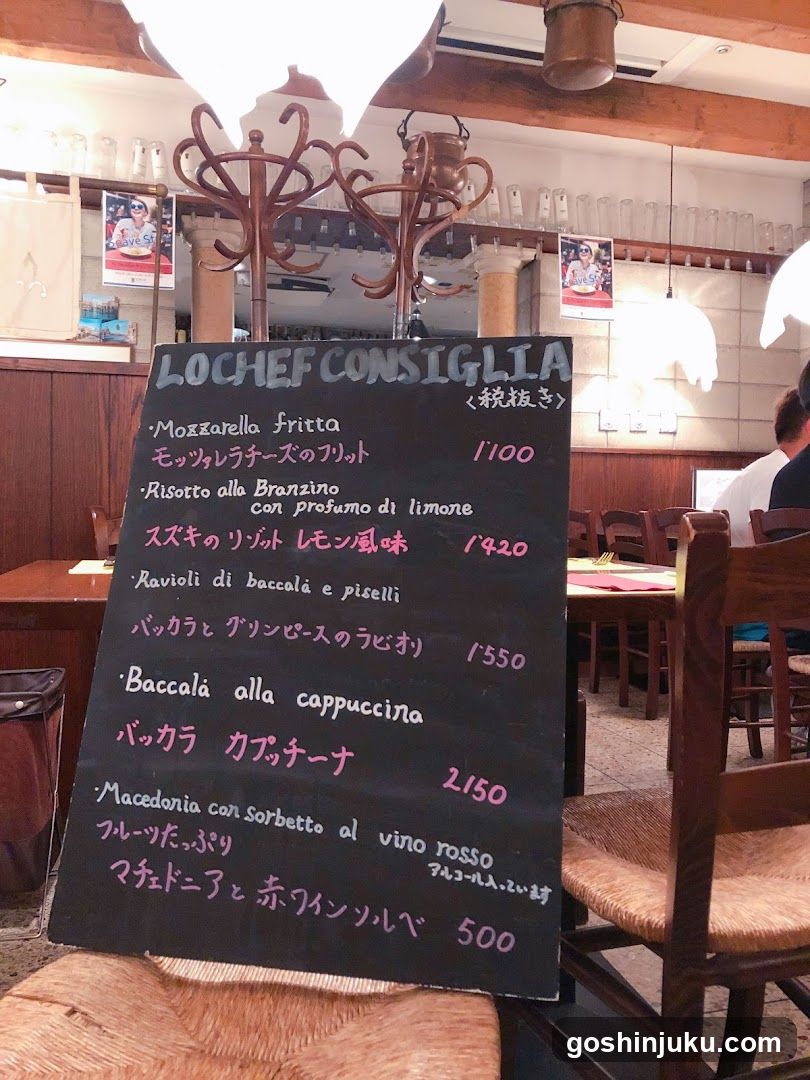 LO CHEF CONSIGLIA
<税抜き>
・Mozzarella fritta
モッツァレラチーズのフリット 1'100
・Risotto alla Branzino
con profumo di limone
スズキのリゾット レモン風味 1'420
・Ravioli di baccalá e piselli
バッカラと グリンピースのラビオリ 1'550
・Baccalá alla cappuccina
バッカラ カプッチーナ 2150
・Macedonia con sorbetto al vino rosso
アルコール入っています
フルーツたっぷり
マチェドニアと赤ワインソルベ 500
goshinjuku.com